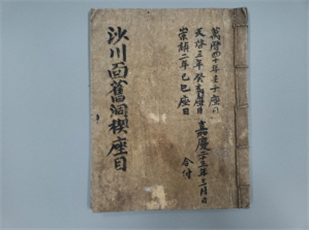 萬曆四十年壬子座目
天啓三年癸亥座目
崇禎二年己巳座目
嘉慶二十三年十二月日
合付
沙川面舊洞稧座目